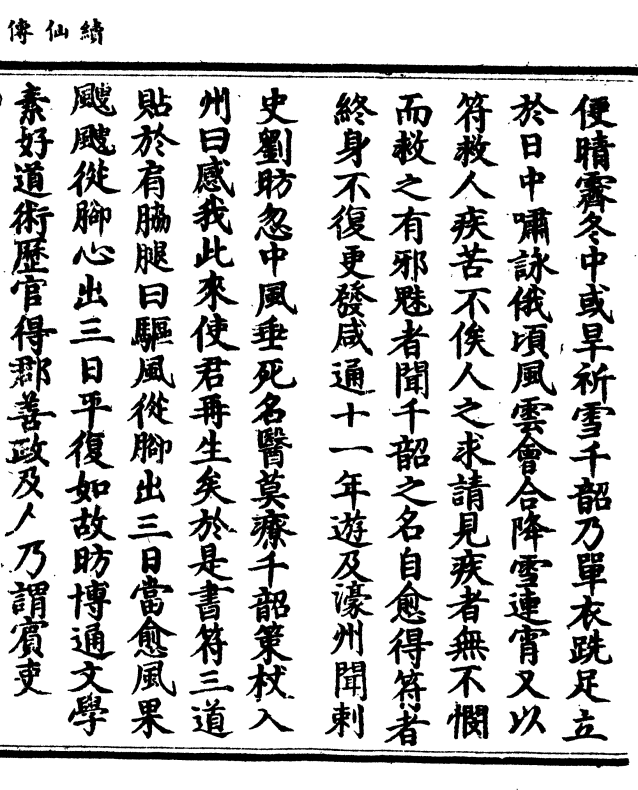 續仙傳
便晴霽冬中或旱祈雪千韶乃單衣跣足立
於日中嘯詠俄頃風雲會合降雪連宵又以
符救人疾苦不俟人之求請見疾者無不憫
而救之有邪魅者聞千韶之名自愈得符者
終身不復更發咸通十一年遊及濠州聞刺
史劉昉忽中風垂死名醫莫療千韶策杖入
州曰感我此來使君再生矣於是書符三道
貼於右脇腿曰驅風從腳出三日當愈風果
颼颼從腳心出三日平復如故昉博通文學
素好道術歷官得郡善政及人乃謂賓吏